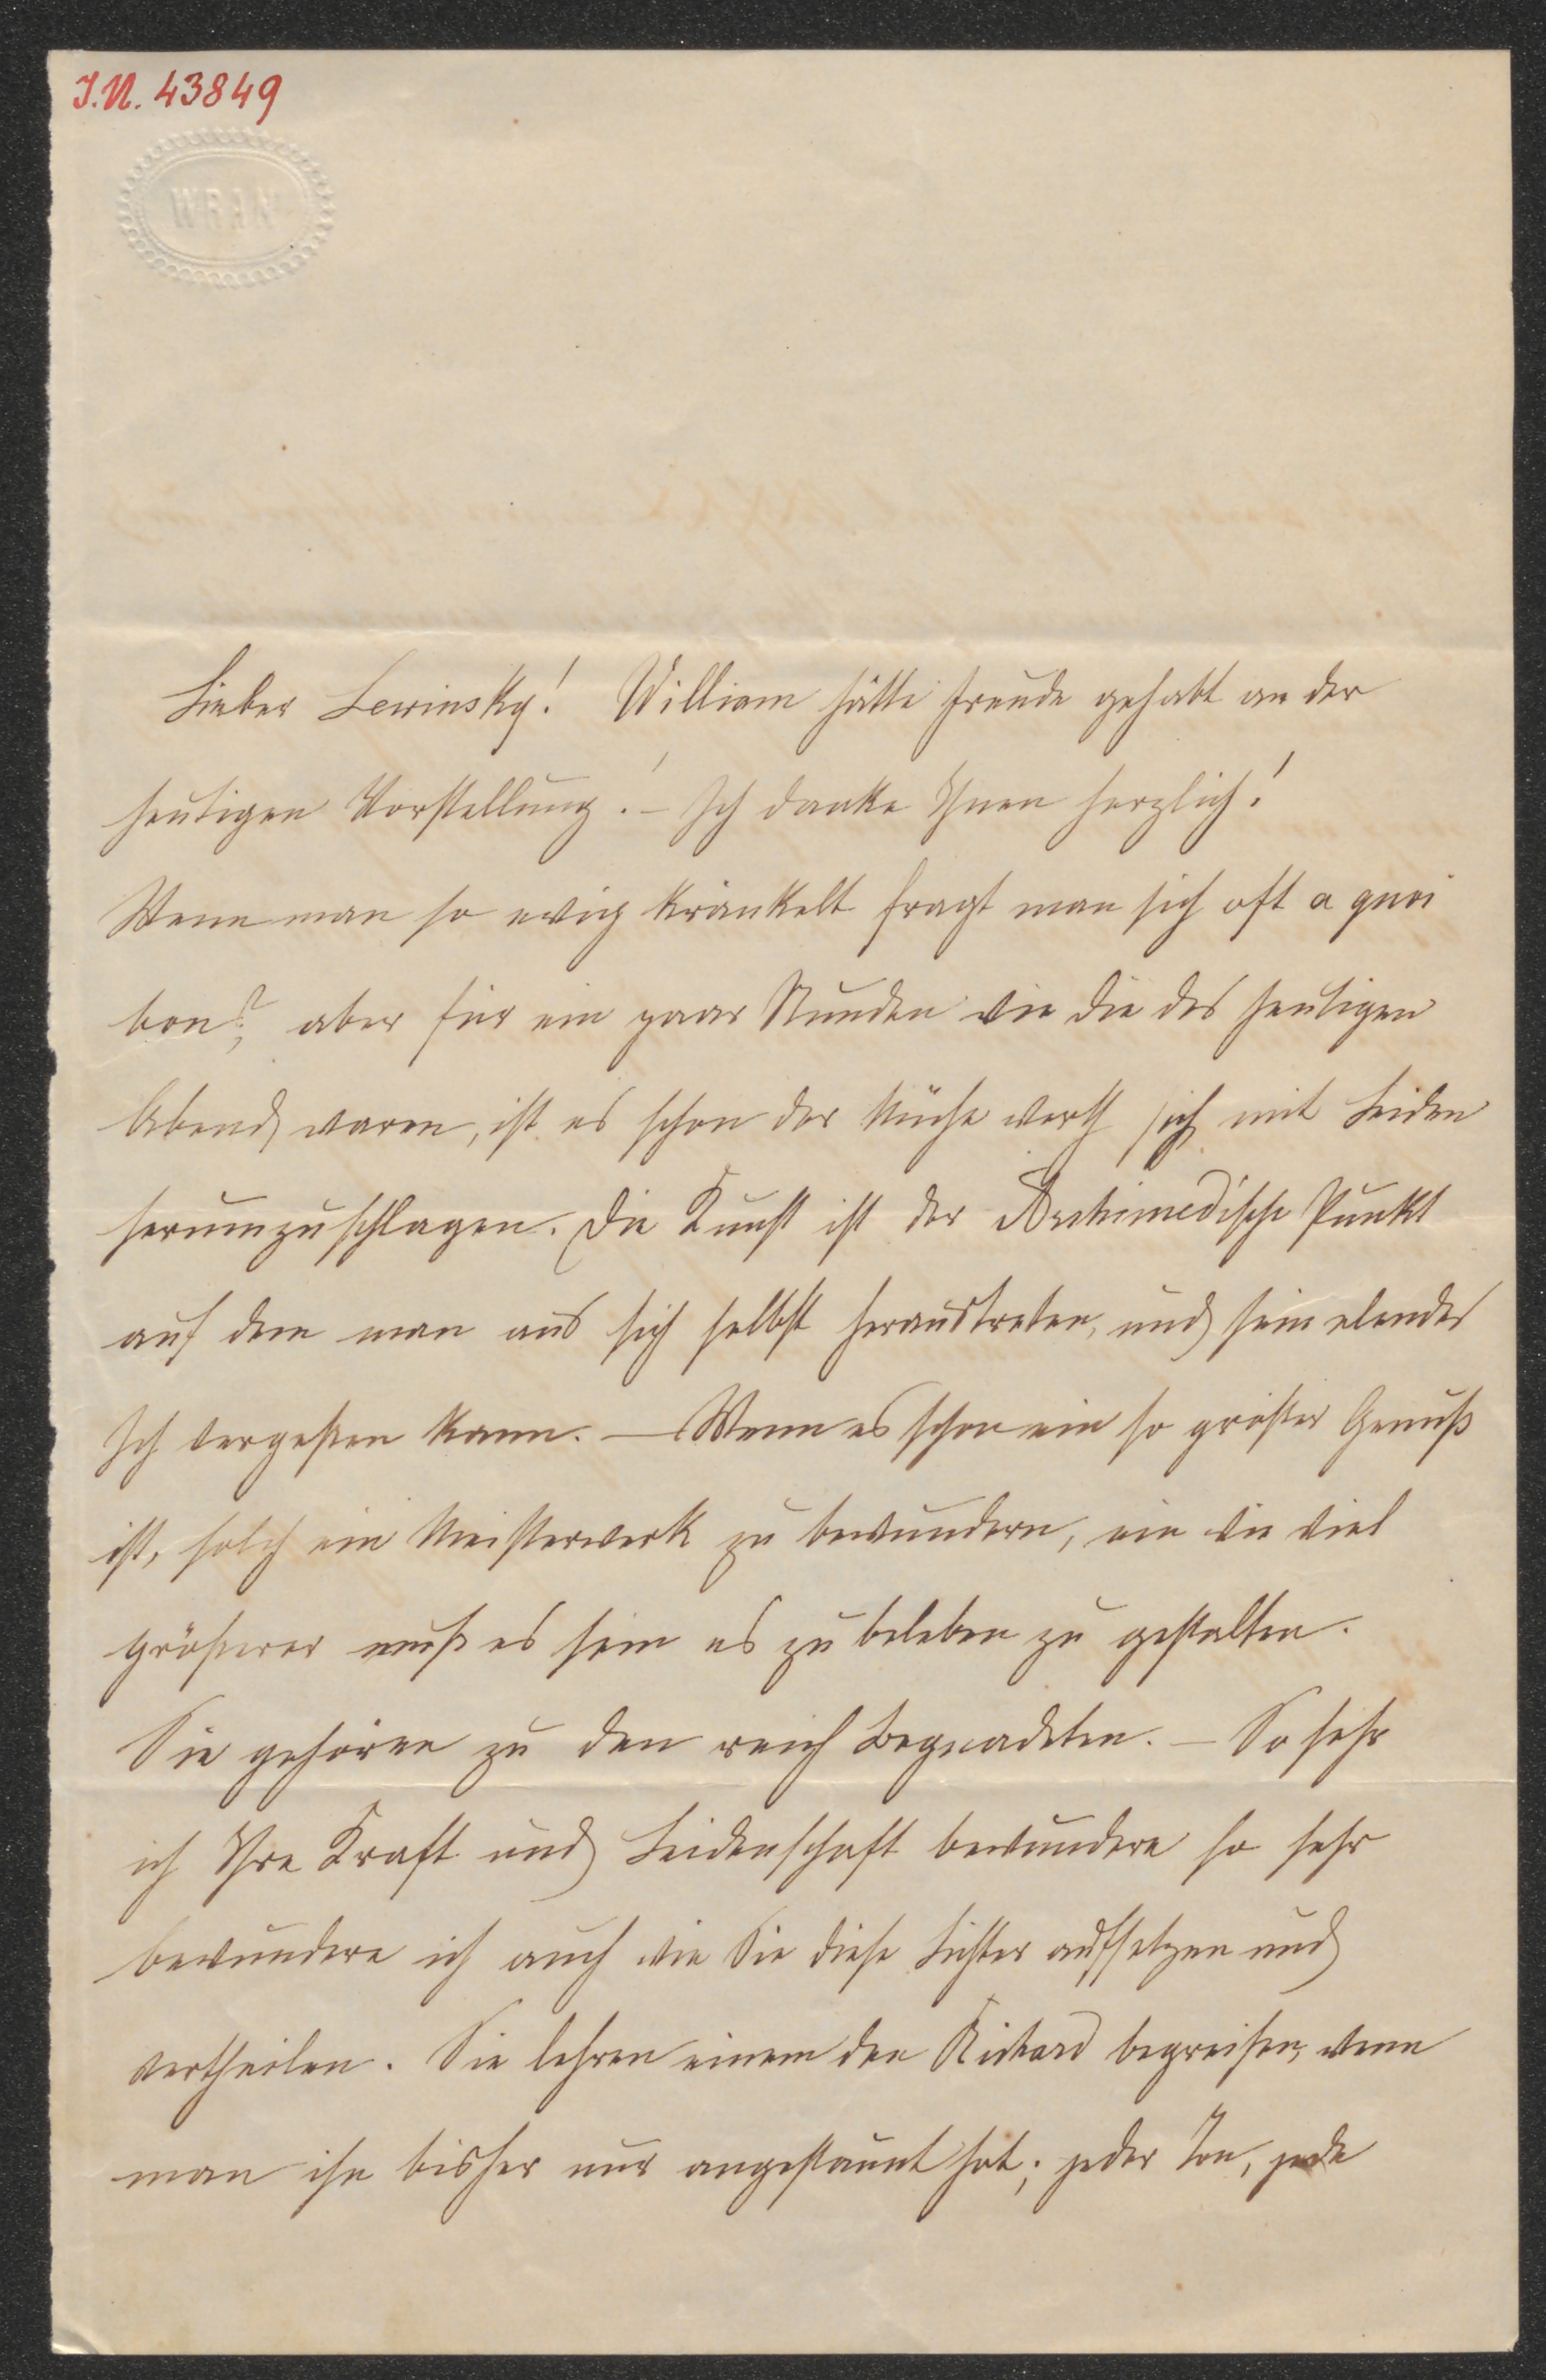 J.N. 43849
Lieber Lewinsky! William hätte Freude gehabt an der
heutigen Vorstellung! – Ich danke Ihnen herzlich!
Wenn man so ewig kränkelt fragt man sich oft a quoi
bon?, aber für ein paar Stunden wie die des heutigen
Abend waren, ist es schon der Mühe werth sich mit Leiden
herumzuschlagen. Die Kunst ist der Archimedische Punkt
auf dem man aus sich selbst heraustreten, und sein elendes
Ich vergeßen kann. – Wenn es schon ein so großer Genuß
ist, solch ein Meisterwerk zu bewundern, ein wie viel
größerer muß es sein es zu beleben zu gestalten.
Sie gehören zu den reich Begnadeten. – So sehr
ich Ihre Kraft und Leidenschaft bewundere so sehr
bewundere ich auch wie Sie diese Lichter aufsetzen und
vertheilen. Sie lehren einem den Richard begreifen, wenn
man ihn bisher nur angestaunt hat; jeder Ton, jede